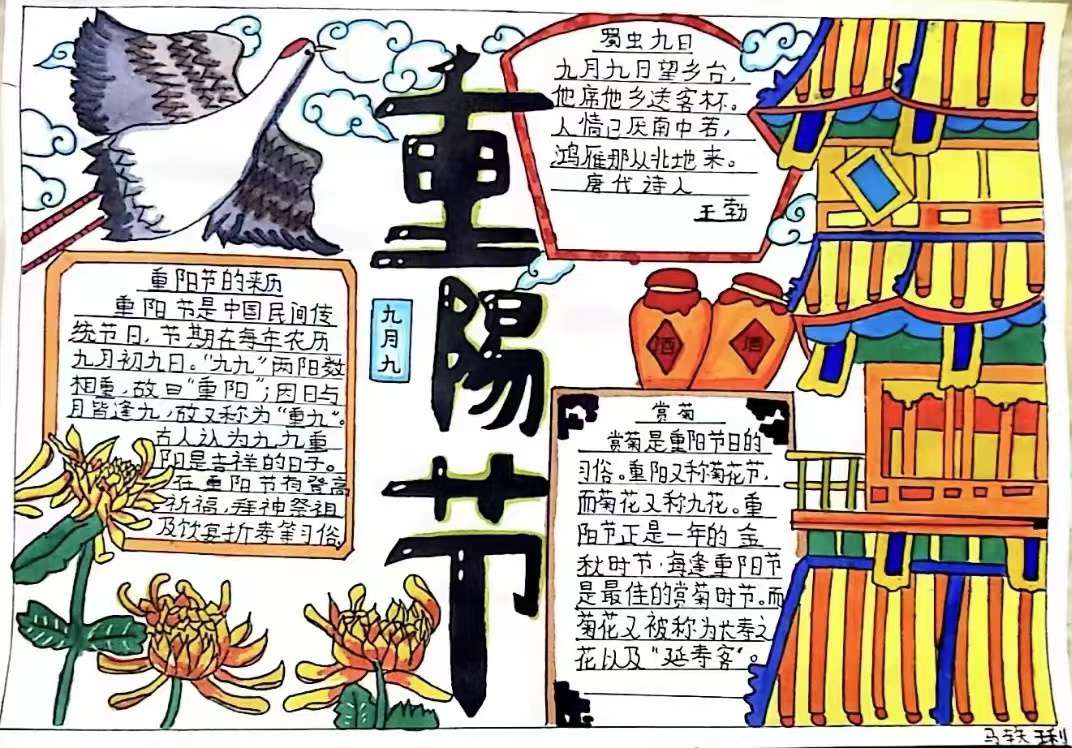 蜀虫九日
九月九日望乡台，
他席他乡送客杯。
人情已厌南中若，
鸿雁那从北地来。
唐代诗人
王勃
重陽节
九月九
重阳节的来历
重阳节是中国民间传
统节日，节期在每年农历
九月初九日。“九九”两阳数
相重，故曰“重阳”；因日与
月皆逢九，故又称为“重九”。
古人认为九九重
阳是吉祥的日子。
在重阳节有登高
祈福，拜神祭祖
及饮宴祈寿等习俗
酒
酒
赏菊
赏菊是重阳节日的
习俗。重阳又称菊花节，
而菊花又称九花。重
阳节正是一年的金
秋时节，每逢重阳节
是最佳的赏菊时节。而
菊花又被称为长寿之
花以及“延寿客”。